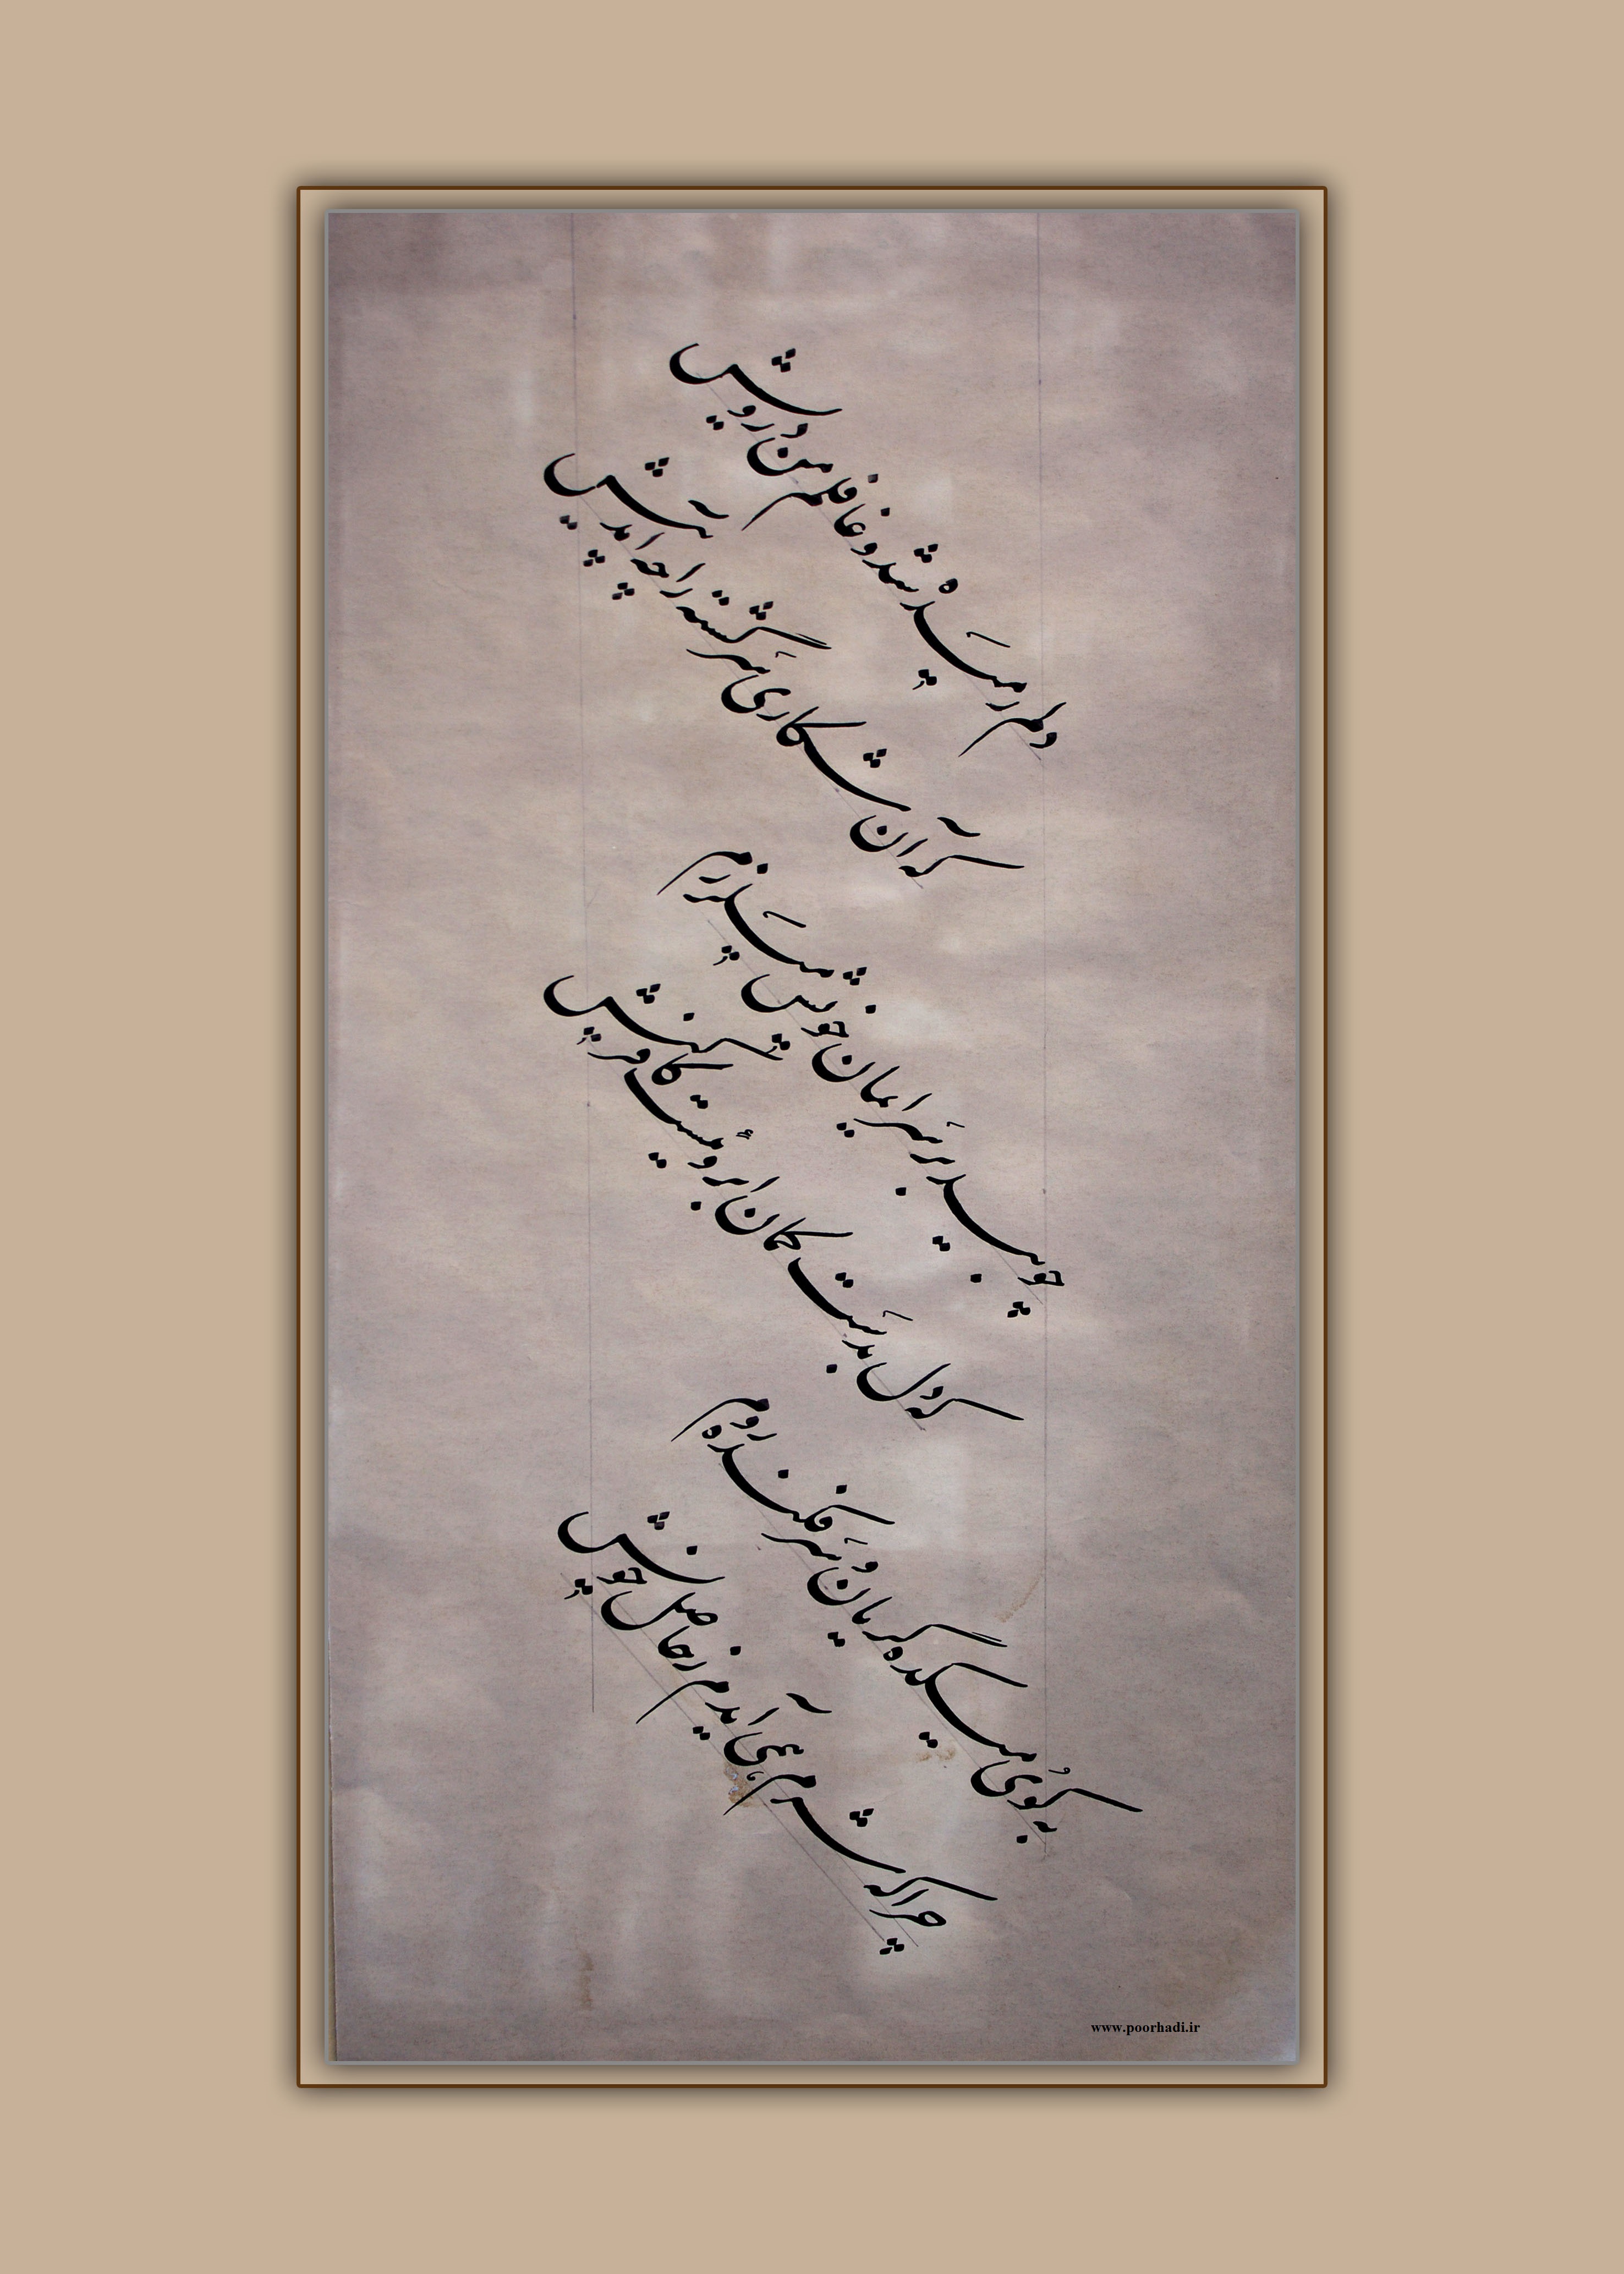 دلم رمیده شد و غافلم من درویش
که آن شکاری سرگشته را چه آمد پیش
چو بید بر سر ایمان خویش میلرزم
که دل بدست کمان ابروئیست کافر کیش
به کوی میکده گریان و سرفکنده روم
چرا که شرم همی آیدم ز حاصل خویش
www.poorhadi.ir